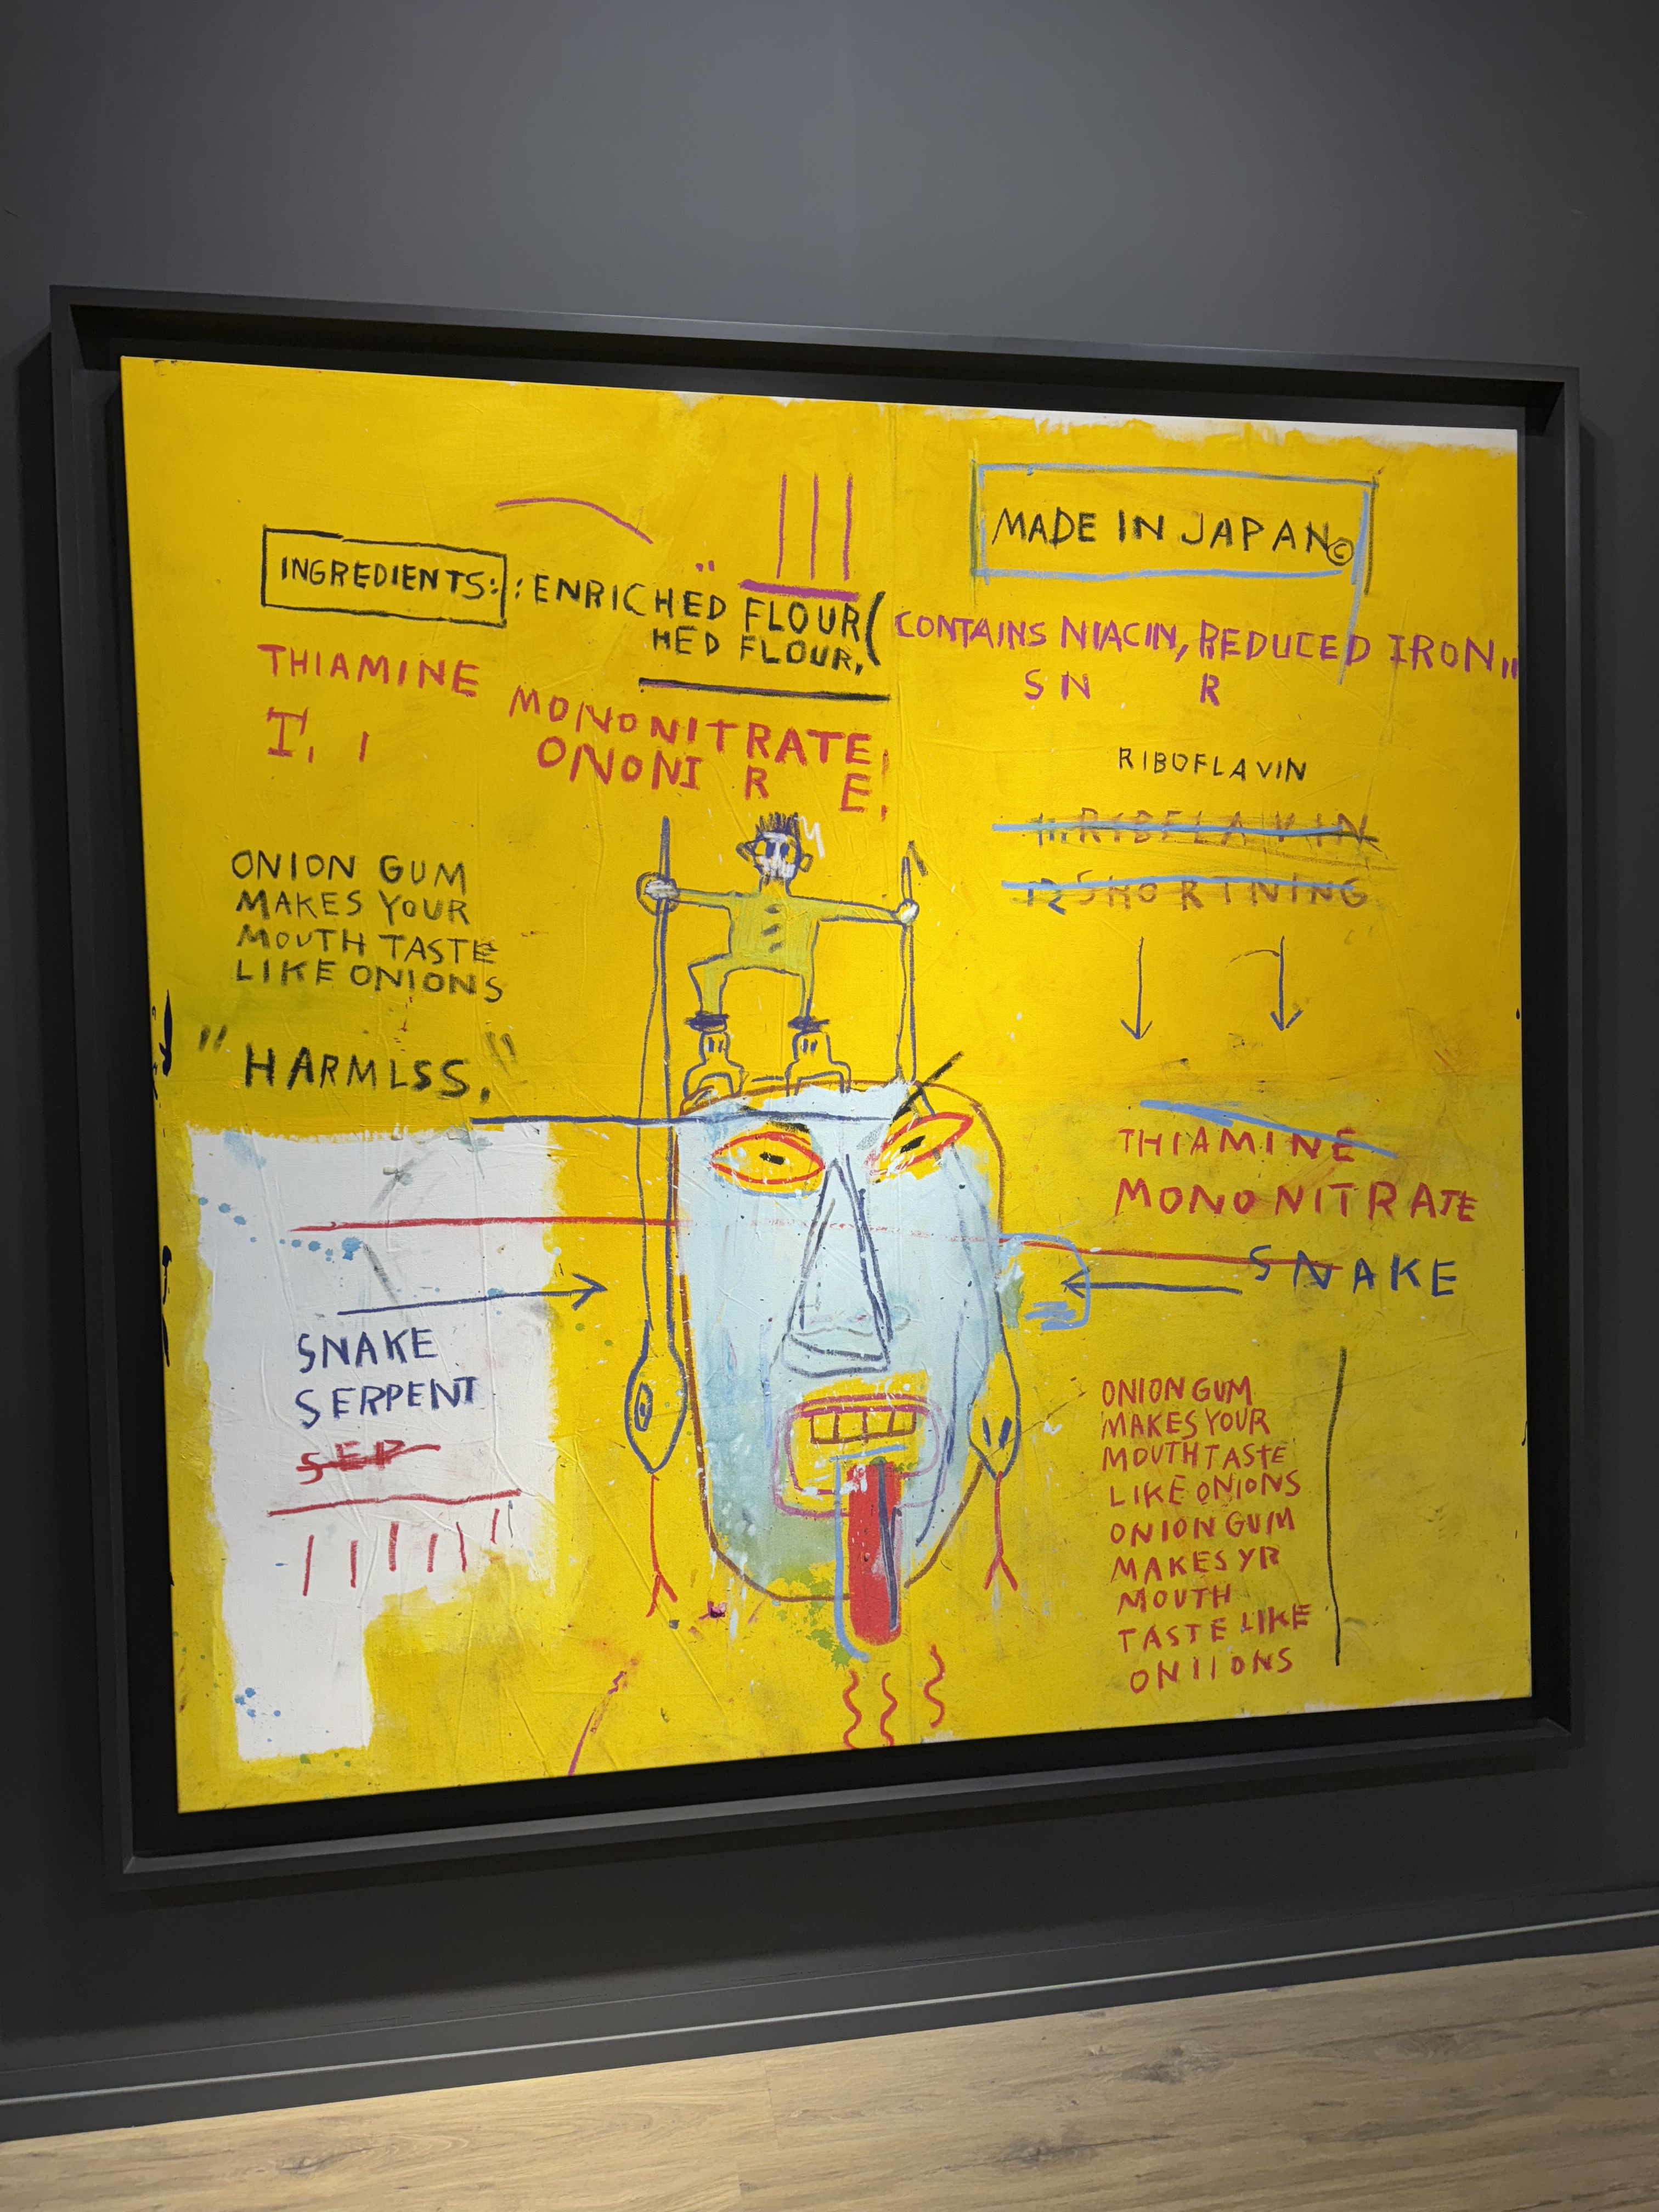 MADE IN JAPAN©
INGREDIENTS: : ENRICHED FLOUR (
HED FLOUR,
CONTAINS NIACIN, REDUCED IRON,,
S N R
THIAMINE
MONONITRATE,
T, I
ONONI R E,
RIBOFLAVIN
11. RIBFLAVIN
12 SHORTNING
ONION GUM
MAKES YOUR
MOUTH TASTE
LIKE ONIONS
"HARMLSS,"
THIAMINE
MONONITRATE
SNAKE
SNAKE
SERPENT
SEP
ONION GUM
MAKES YOUR
MOUTH TASTE
LIKE ONIONS
ONION GUM
MAKES YR
MOUTH
TASTE LIKE
ONIIONS